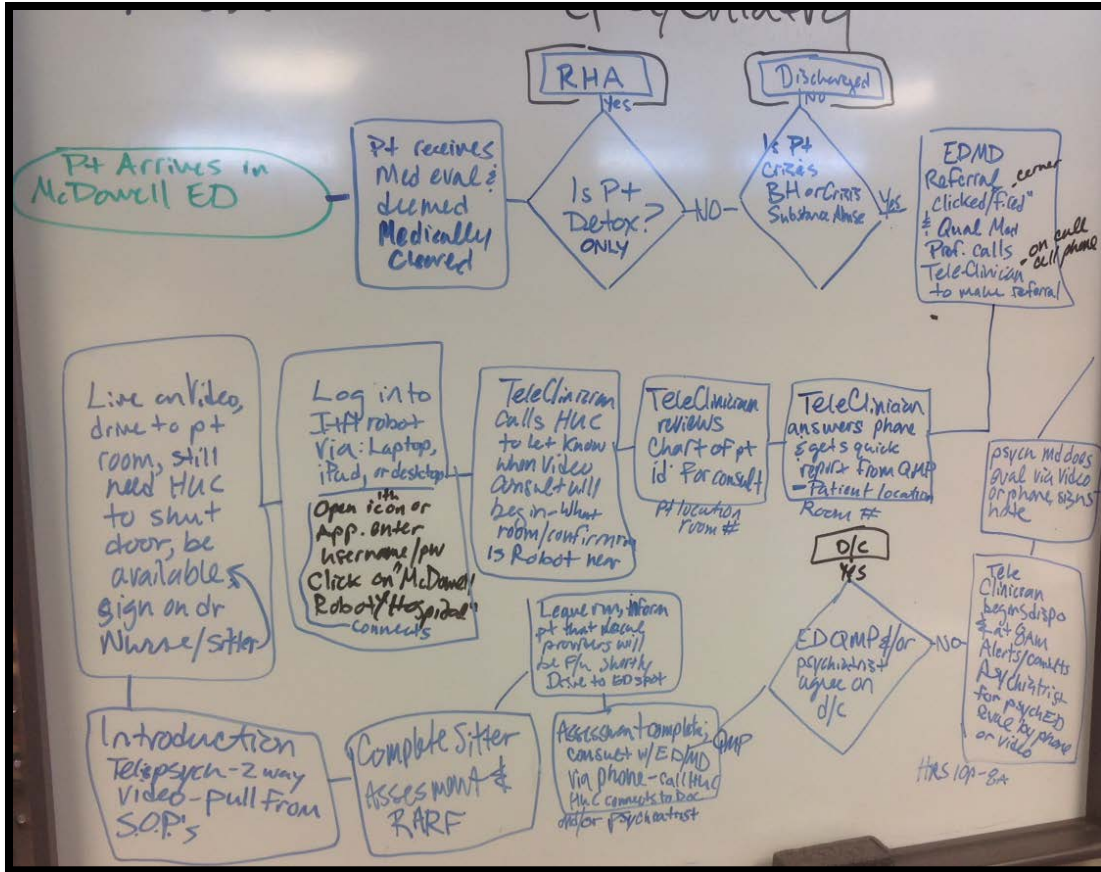 RHA
Yes
Discharged
NO
Pt Arrives in
McDowell ED
Pt receives
Med eval &
deemed
Medically
Cleared
Is Pt
Detox?
ONLY
NO
Is Pt
Crisis
BH or Crisis
Substance Abuse
Yes
EDMD
Referral - cerner
clicked/fired"
& Qual Med
Prof. calls - on call
cell phone
Tele-Clinician
to make referral
TeleClinician
answers phone
& gets quick
report from QMP
- Patient location
Room #
TeleClinician
reviews
Chart of pt
id' for consult
Pt location
room #
TeleClinician
calls HUC
to let know
when video
consult will
begin - what
room/confirm
is Robot near
Log into
robot
via: Laptop,
iPad, or desktop
Open icon or
App. enter
username/pw
Click on "McDowell
Robot/Hospital"
connects
Live on Video,
drive to pt
room, still
need HUC
to shut
door, be
available
sign on dr
Nurse/sitter
Introduction
Telepsych - 2 way
video - pull from
S.O.P.'s
Complete Sitter
Assesment &
RARF
Leave rm, inform
pt that
providers will
be F/u shortly
Drive to ED spot
Assessment complete;
consult w/ED/MD
via phone - call HUC
HUC connects to Doc
and/or psychiatrist
QMP
D/C
Yes
ED QMP &/or
psychiatrist
agree on
d/c
NO
Tele
Clinician
begins dispo
& at 8AM
Alerts/consults
Psychiatrist
for psych ED
eval by phone
or video
HRS 10p-8A
psych md does
eval via video
or phone, signs
note